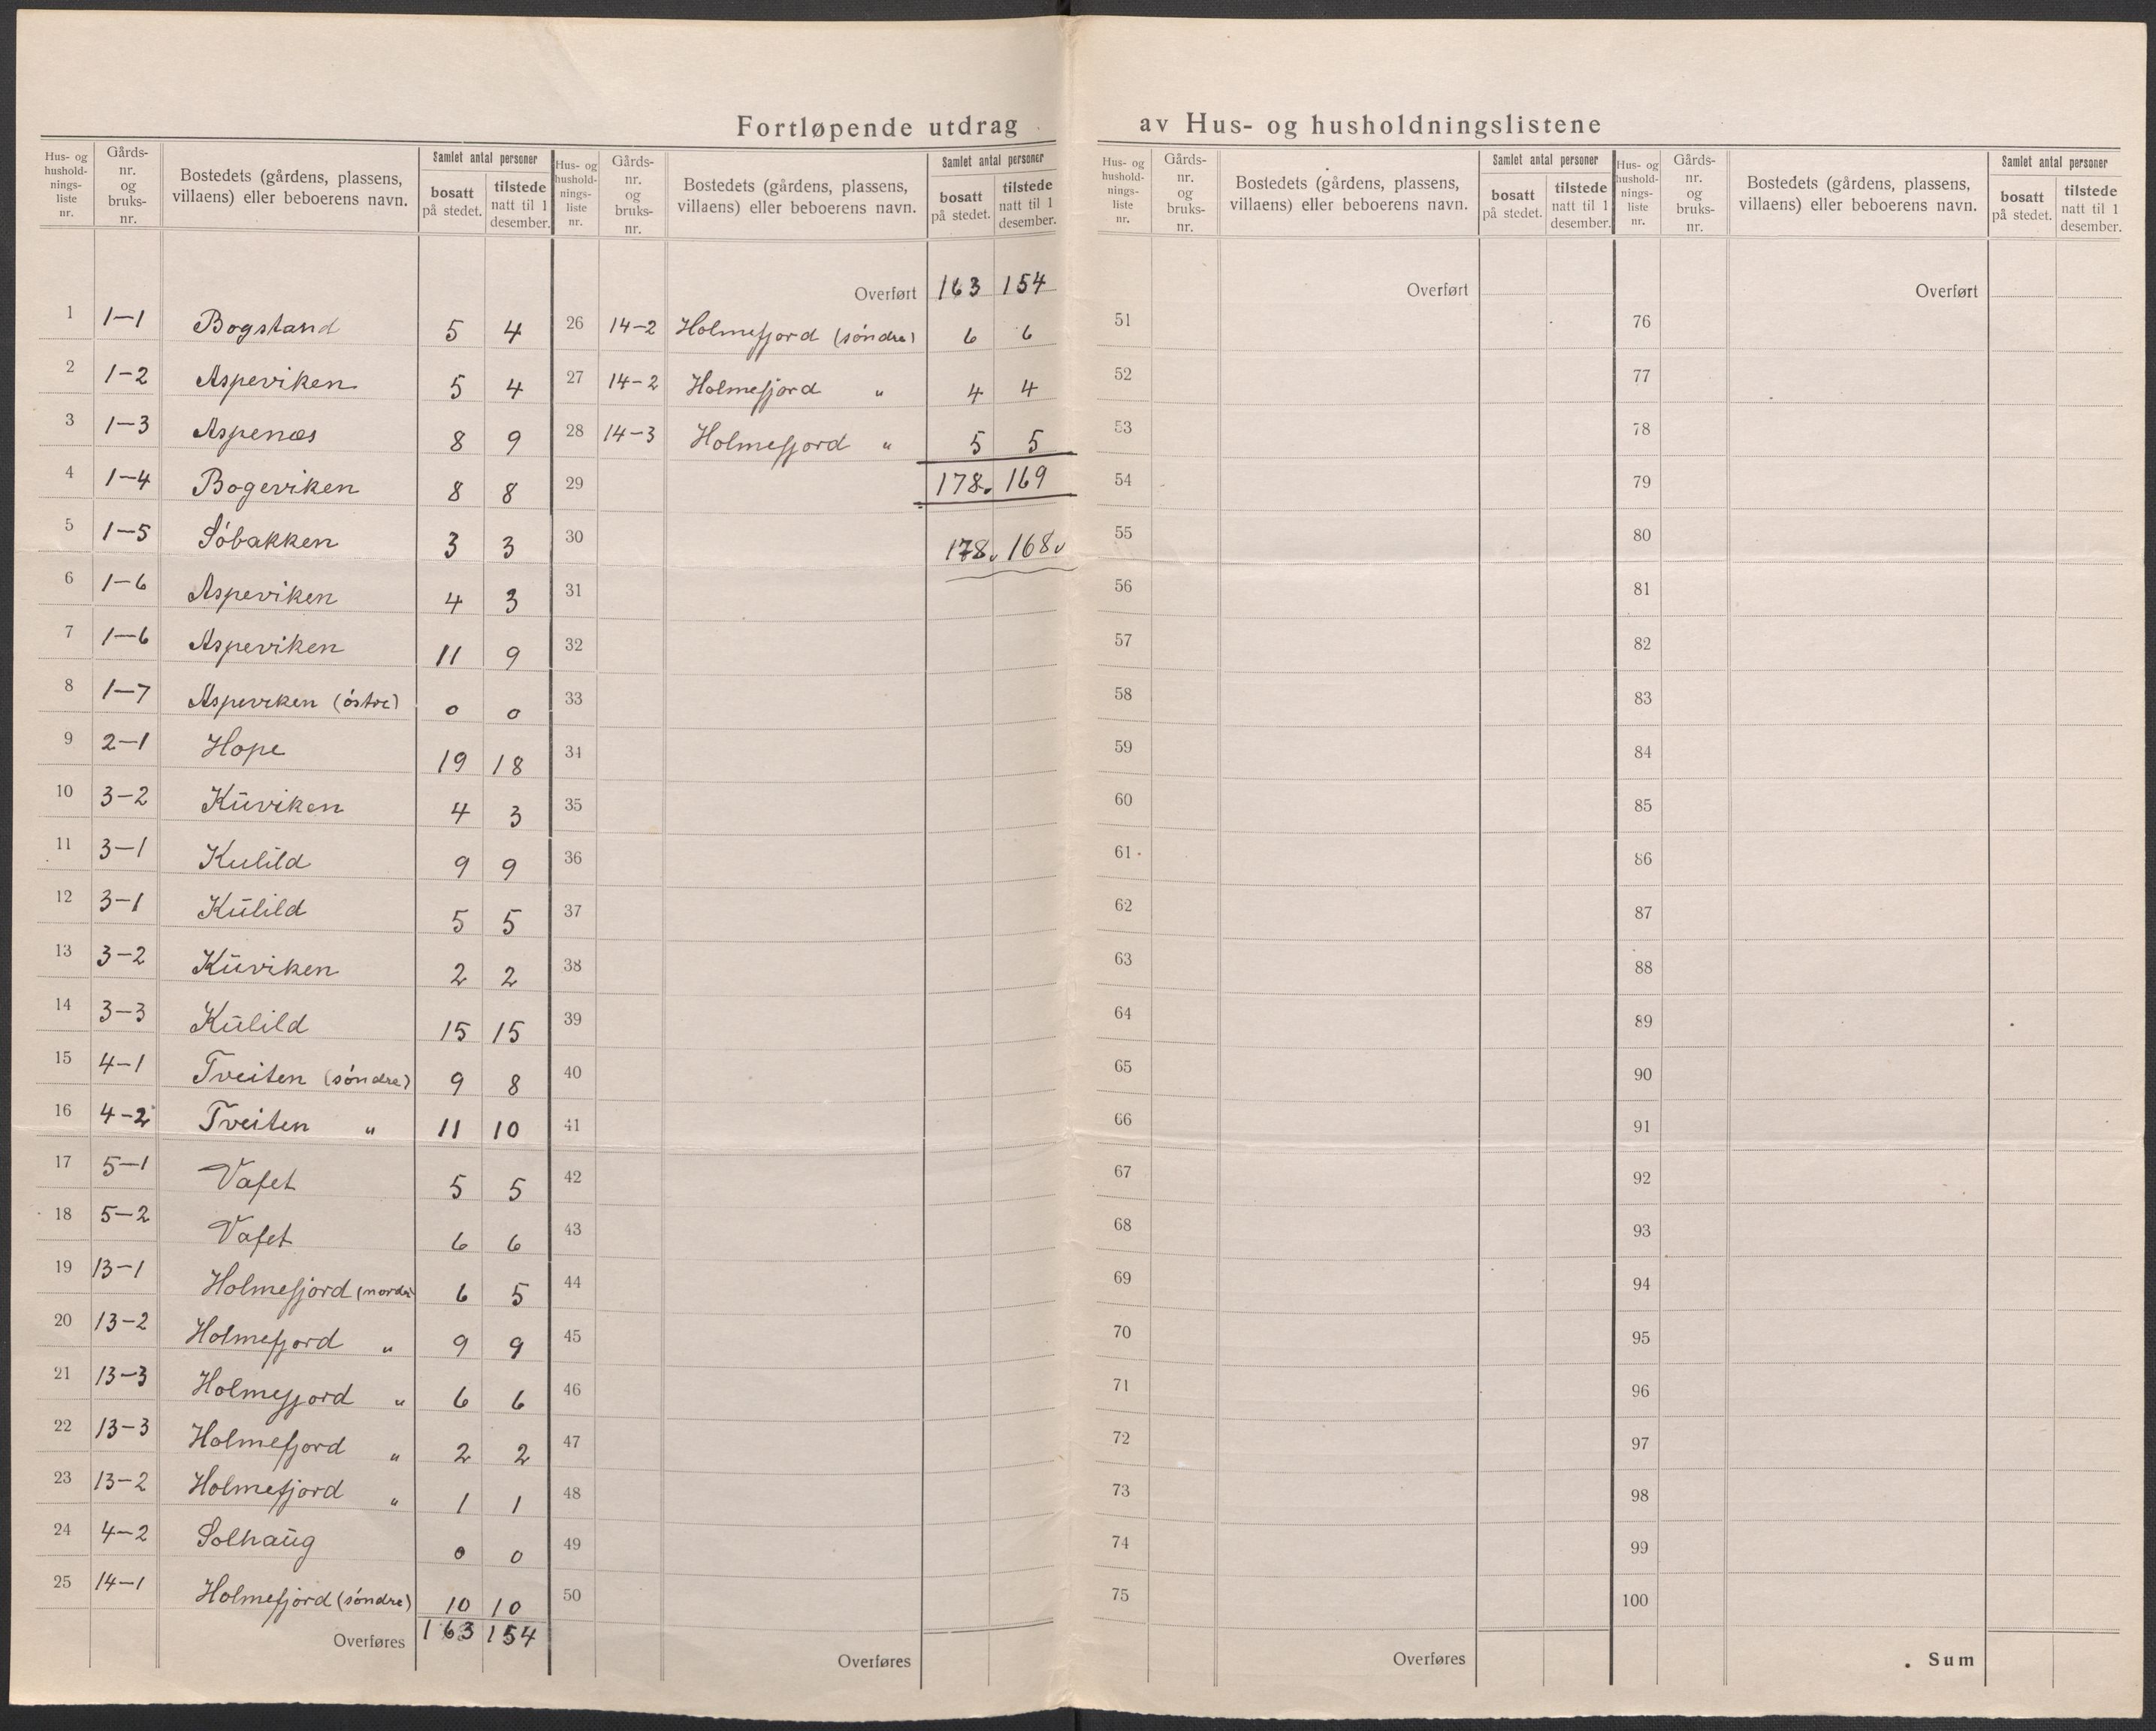 Fortløpende utdrag av Hus- og husholdningslistene
Hus- og hushold- nings- liste nr. | Gårds- nr. og bruks- nr. | Bostedets (gårdens, plassens, villaens) eller beboerens navn. | Samlet antal personer | bosatt på stedet. | tilstede natt til 1 desember.
1 1-1 Bogstand 5 4
2 1-2 Aspeviken 5 4
3 1-3 Aspenæs 8 9
4 1-4 Bogeviken 8 8
5 1-5 Sóbakken 3 3
6 1-6 Aspeviken 4 3
7 1-6 Aspeviken 11 9
8 1-7 Aspeviken (óstre) 0 0
9 2-1 Hope 19 18
10 3-2 Kūviken 4 3
11 3-1 Kulild 9 9
12 3-1 Kūlild 5 5
13 3-2 Kūviken 2 2
14 3-3 Kūlild 15 15
15 4-1 Tveiten (sóndre) 9 8
16 4-2 Tveiten " 11 10
17 5-1 Vafet 5 5
18 5-2 Vafet 6 6
19 13-1 Holmefjord (nordre 6 5
20 13-2 Holmefjord " 9 9
21 13-3 Holmefjord " 6 6
22 13-3 Holmefjord " 2 2
23 13-2 Holmefjord " 1 1
24 4-2 Solhaūg 0 0
25 14-1 Holmefjord (sóndre) 10 10
Overføres 163 154
Hus- og hushold- nings- liste nr. | Gårds- nr. og bruks- nr. | Bostedets (gårdens, plassens, villaens) eller beboerens navn. | Samlet antal personer | bosatt på stedet. | tilstede natt til 1 desember.
Overført 163 154
26 14-2 Holmefjord (sóndre) 6 6
27 14-2 Holmefjord " 4 4
28 14-3 Holmefjord " 5 5
29 178. 169
30 178v 168v
31
32
33
34
35
36
37
38
39
40
41
42
43
44
45
46
47
48
49
50
Overføres
Hus- og hushold- nings- liste nr. | Gårds- nr. og bruks- nr. | Bostedets (gårdens, plassens, villaens) eller beboerens navn. | Samlet antal personer | bosatt på stedet. | tilstede natt til 1 desember.
Overført
51
52
53
54
55
56
57
58
59
60
61
62
63
64
65
66
67
68
69
70
71
72
73
74
75
Overføres
Hus- og hushold- nings- liste nr. | Gårds- nr. og bruks- nr. | Bostedets (gårdens, plassens, villaens) eller beboerens navn. | Samlet antal personer | bosatt på stedet. | tilstede natt til 1 desember.
Overført
76
77
78
79
80
81
82
83
84
85
86
87
88
89
90
91
92
93
94
95
96
97
98
99
100
Sum